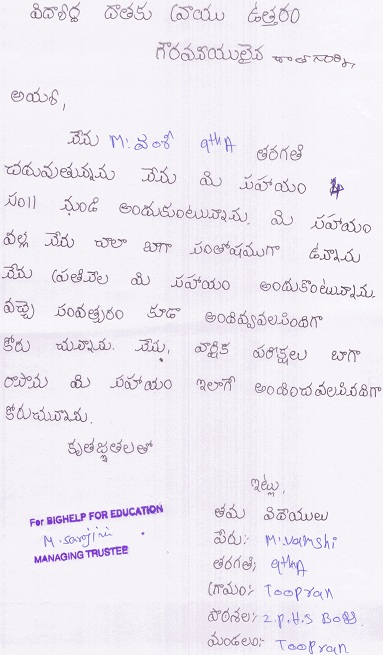 విద్యార్థి దాతకు వ్రాయు ఉత్తరం
గౌరవనీయులైన దాతగారికి,
అయ్యా,
నేను M. వంశీ 9th A తరగతి
చదువుతున్నాను నేను మి సహాయం
సం॥ నుండి అందుకుంటున్నాను. మి సహాయం
వల్ల నేను చాలా బాగా సంతోషముగా ఉన్నాను
నేను ప్రతినెల మి సహాయం అందుకొంటున్నాను.
వచ్చే సంవత్సరం కూడా అందివ్వవలసిందిగా
కోరు చున్నాను. నేను, వార్షిక పరీక్షలు బాగా
రాసాను మి సహాయం ఇలాగే అందించవలసినదిగా
కోరుచున్నాను.
కృతజ్ఞతలతో
ఇట్లు,
తమ విధేయులు
పేరు: M. Vamshi
తరగతి: 9th A
గ్రామం: Toopran
పాఠశాల: Z.P.H.S Boys.
మండలం: Toopran
For BIGHELP FOR EDUCATION
M. Sarojini
MANAGING TRUSTEE